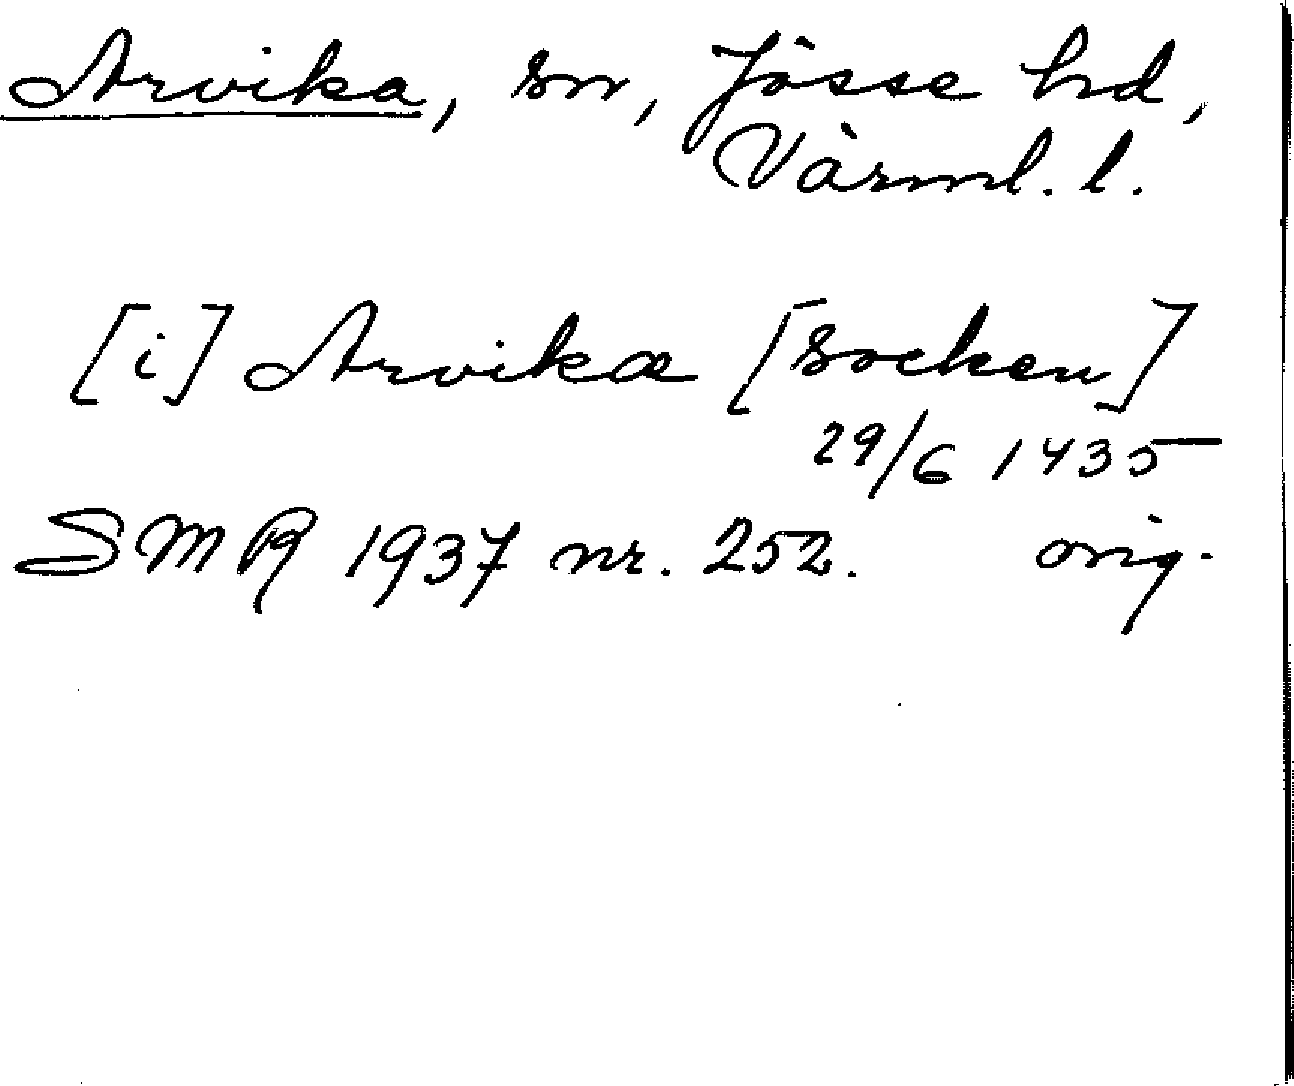 Arvika, sn, Jösse hd,
Värml. l.
[i] Arvikæ [socken]
29/6 1435
SMR 1937 nr. 252. orig.